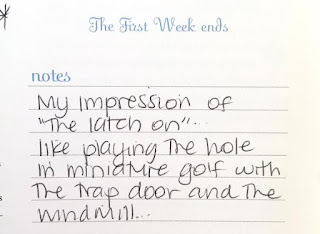 The First Week ends
notes
My impression of
"The latch on"...
like playing the hole
in miniature golf with
the trap door and the
windmill...